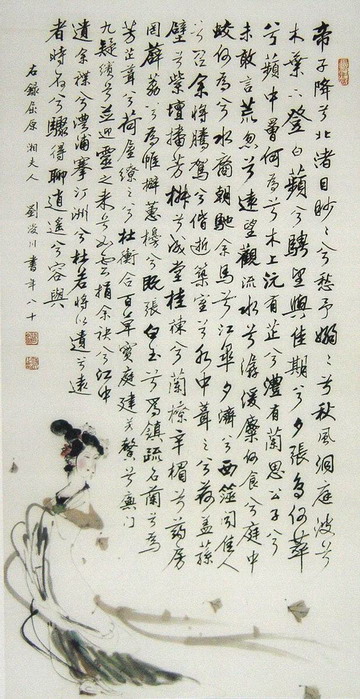 帝子降兮北渚目眇眇兮愁予嫋嫋兮秋風洞庭波兮
木葉下登白蘋兮騁望與佳期兮夕張鳥何萃
兮蘋中罾何為兮木上沅有芷兮澧有蘭思公子兮
未敢言荒忽兮遠望觀流水兮潺湲麋何食兮庭中
蛟何為兮水裔朝馳余馬兮江皋夕濟兮西澨聞佳人
兮召余將騰駕兮偕逝築室兮水中葺之兮荷蓋蓀
壁兮紫壇播芳椒兮成堂桂棟兮蘭橑辛楣兮葯房
罔薜荔兮為帷擗蕙櫋兮既張白玉兮為鎮疏石蘭兮為
芳芷葺兮荷屋繚之兮杜衡合百草兮實庭建芳馨兮廡門
九疑繽兮並迎靈之來兮如雲捐余袂兮江中
遺余褋兮澧浦搴汀洲兮杜若將以遺兮遠
者時不可兮驟得聊逍遙兮容與
右錄屈原湘夫人 劉浚川書年八十